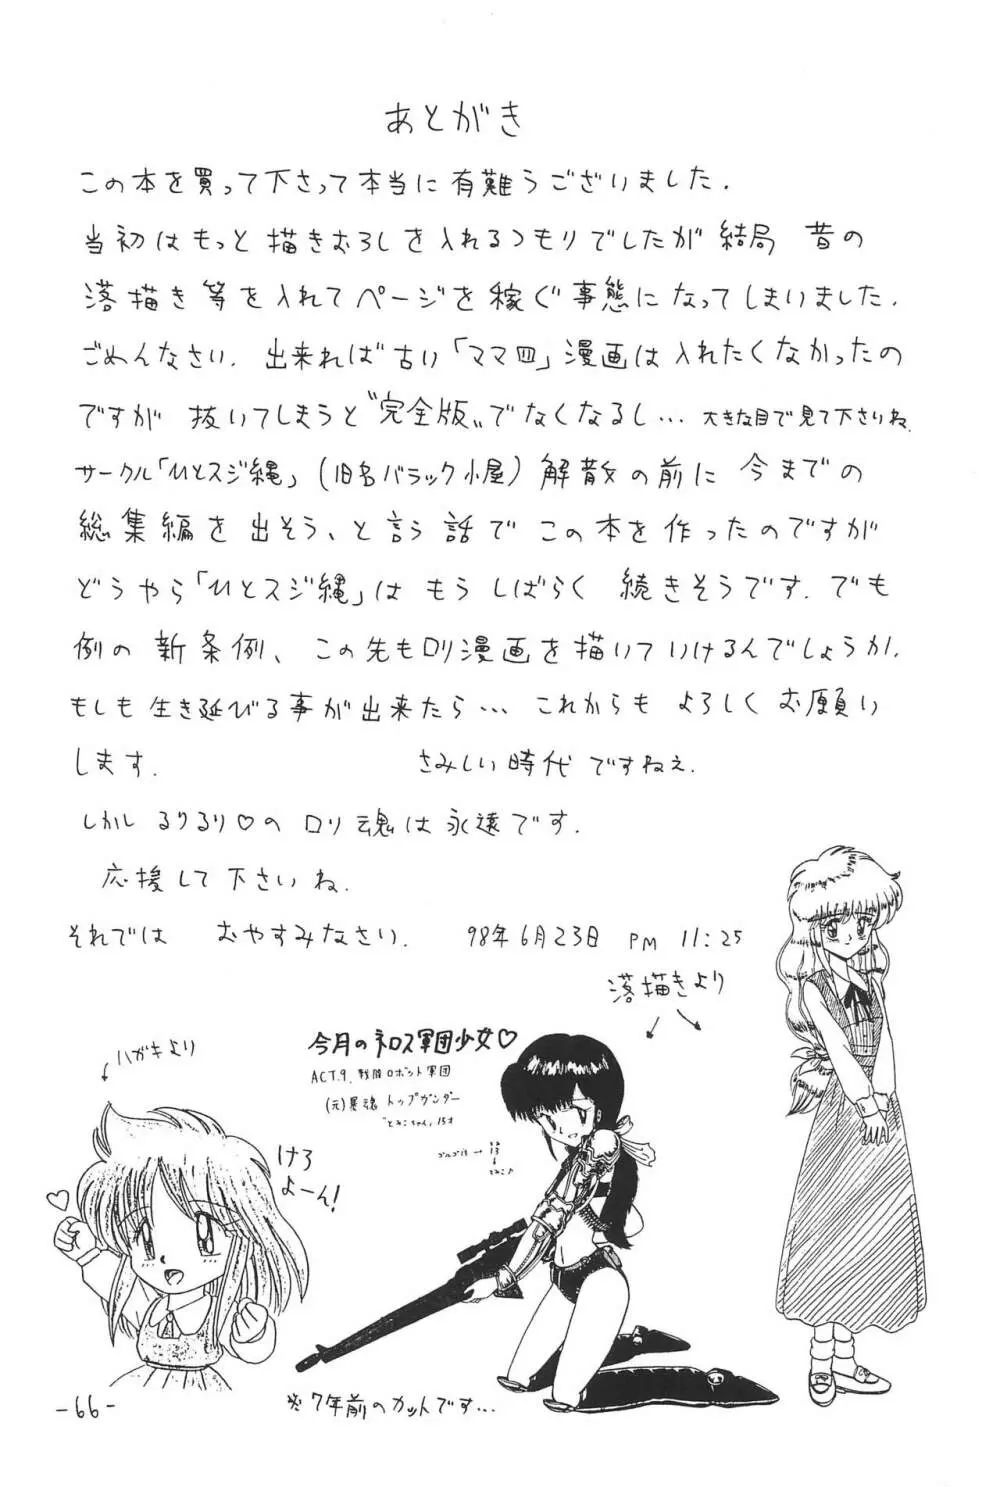 あとがき
この本を買って下さって本当に有難うございました.
当初はもっと描きおろしを入れるつもりでしたが結局 昔の
落描き等を入れてページを稼ぐ事態になってしまいました.
ごめんなさい. 出来れば古い「ママ四」漫画は入れたくなかったの
ですが 抜いてしまうと〝完全版〟でなくなるし… 大きな目で見て下さいね.
サークル「ひとスジ縄」(旧名バラック小屋) 解散の前に 今までの
総集編を出そう、と言う話で この本を作ったのですが
どうやら「ひとスジ縄」は もう しばらく 続きそうです. でも
例の 新条例、この先もロリ漫画を描いていけるんでしょうか.
もしも 生き延びる事が出来たら… これからも よろしく お願い
します. さみしい時代 ですねぇ.
しかし るりるり♡の ロリ魂は永遠です.
応援して下さいね.
それでは おやすみなさい. 98年6月23日 PM 11:25
落描きより
ハガキより
今月のネロス軍団少女♡
ACT.9. 戦闘ロボット軍団
(元)暴魂 トップガンダー
"とみこちゃん" 15才
ゴルゴ13 → 13
とみこ♪
けろ
よーん!
※7年前のカットです…
-66-